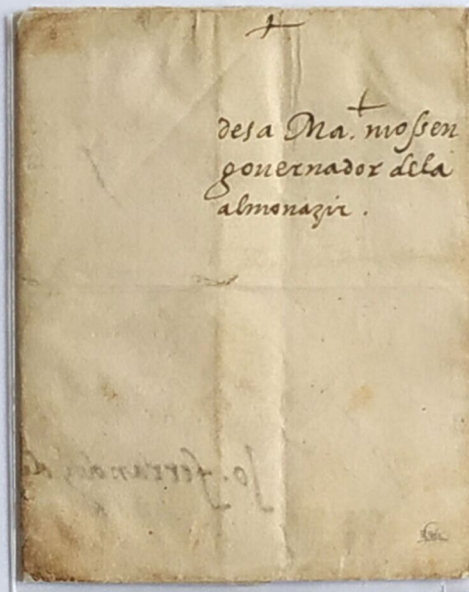 desa Ma. mossen
governador dela
almonazir .